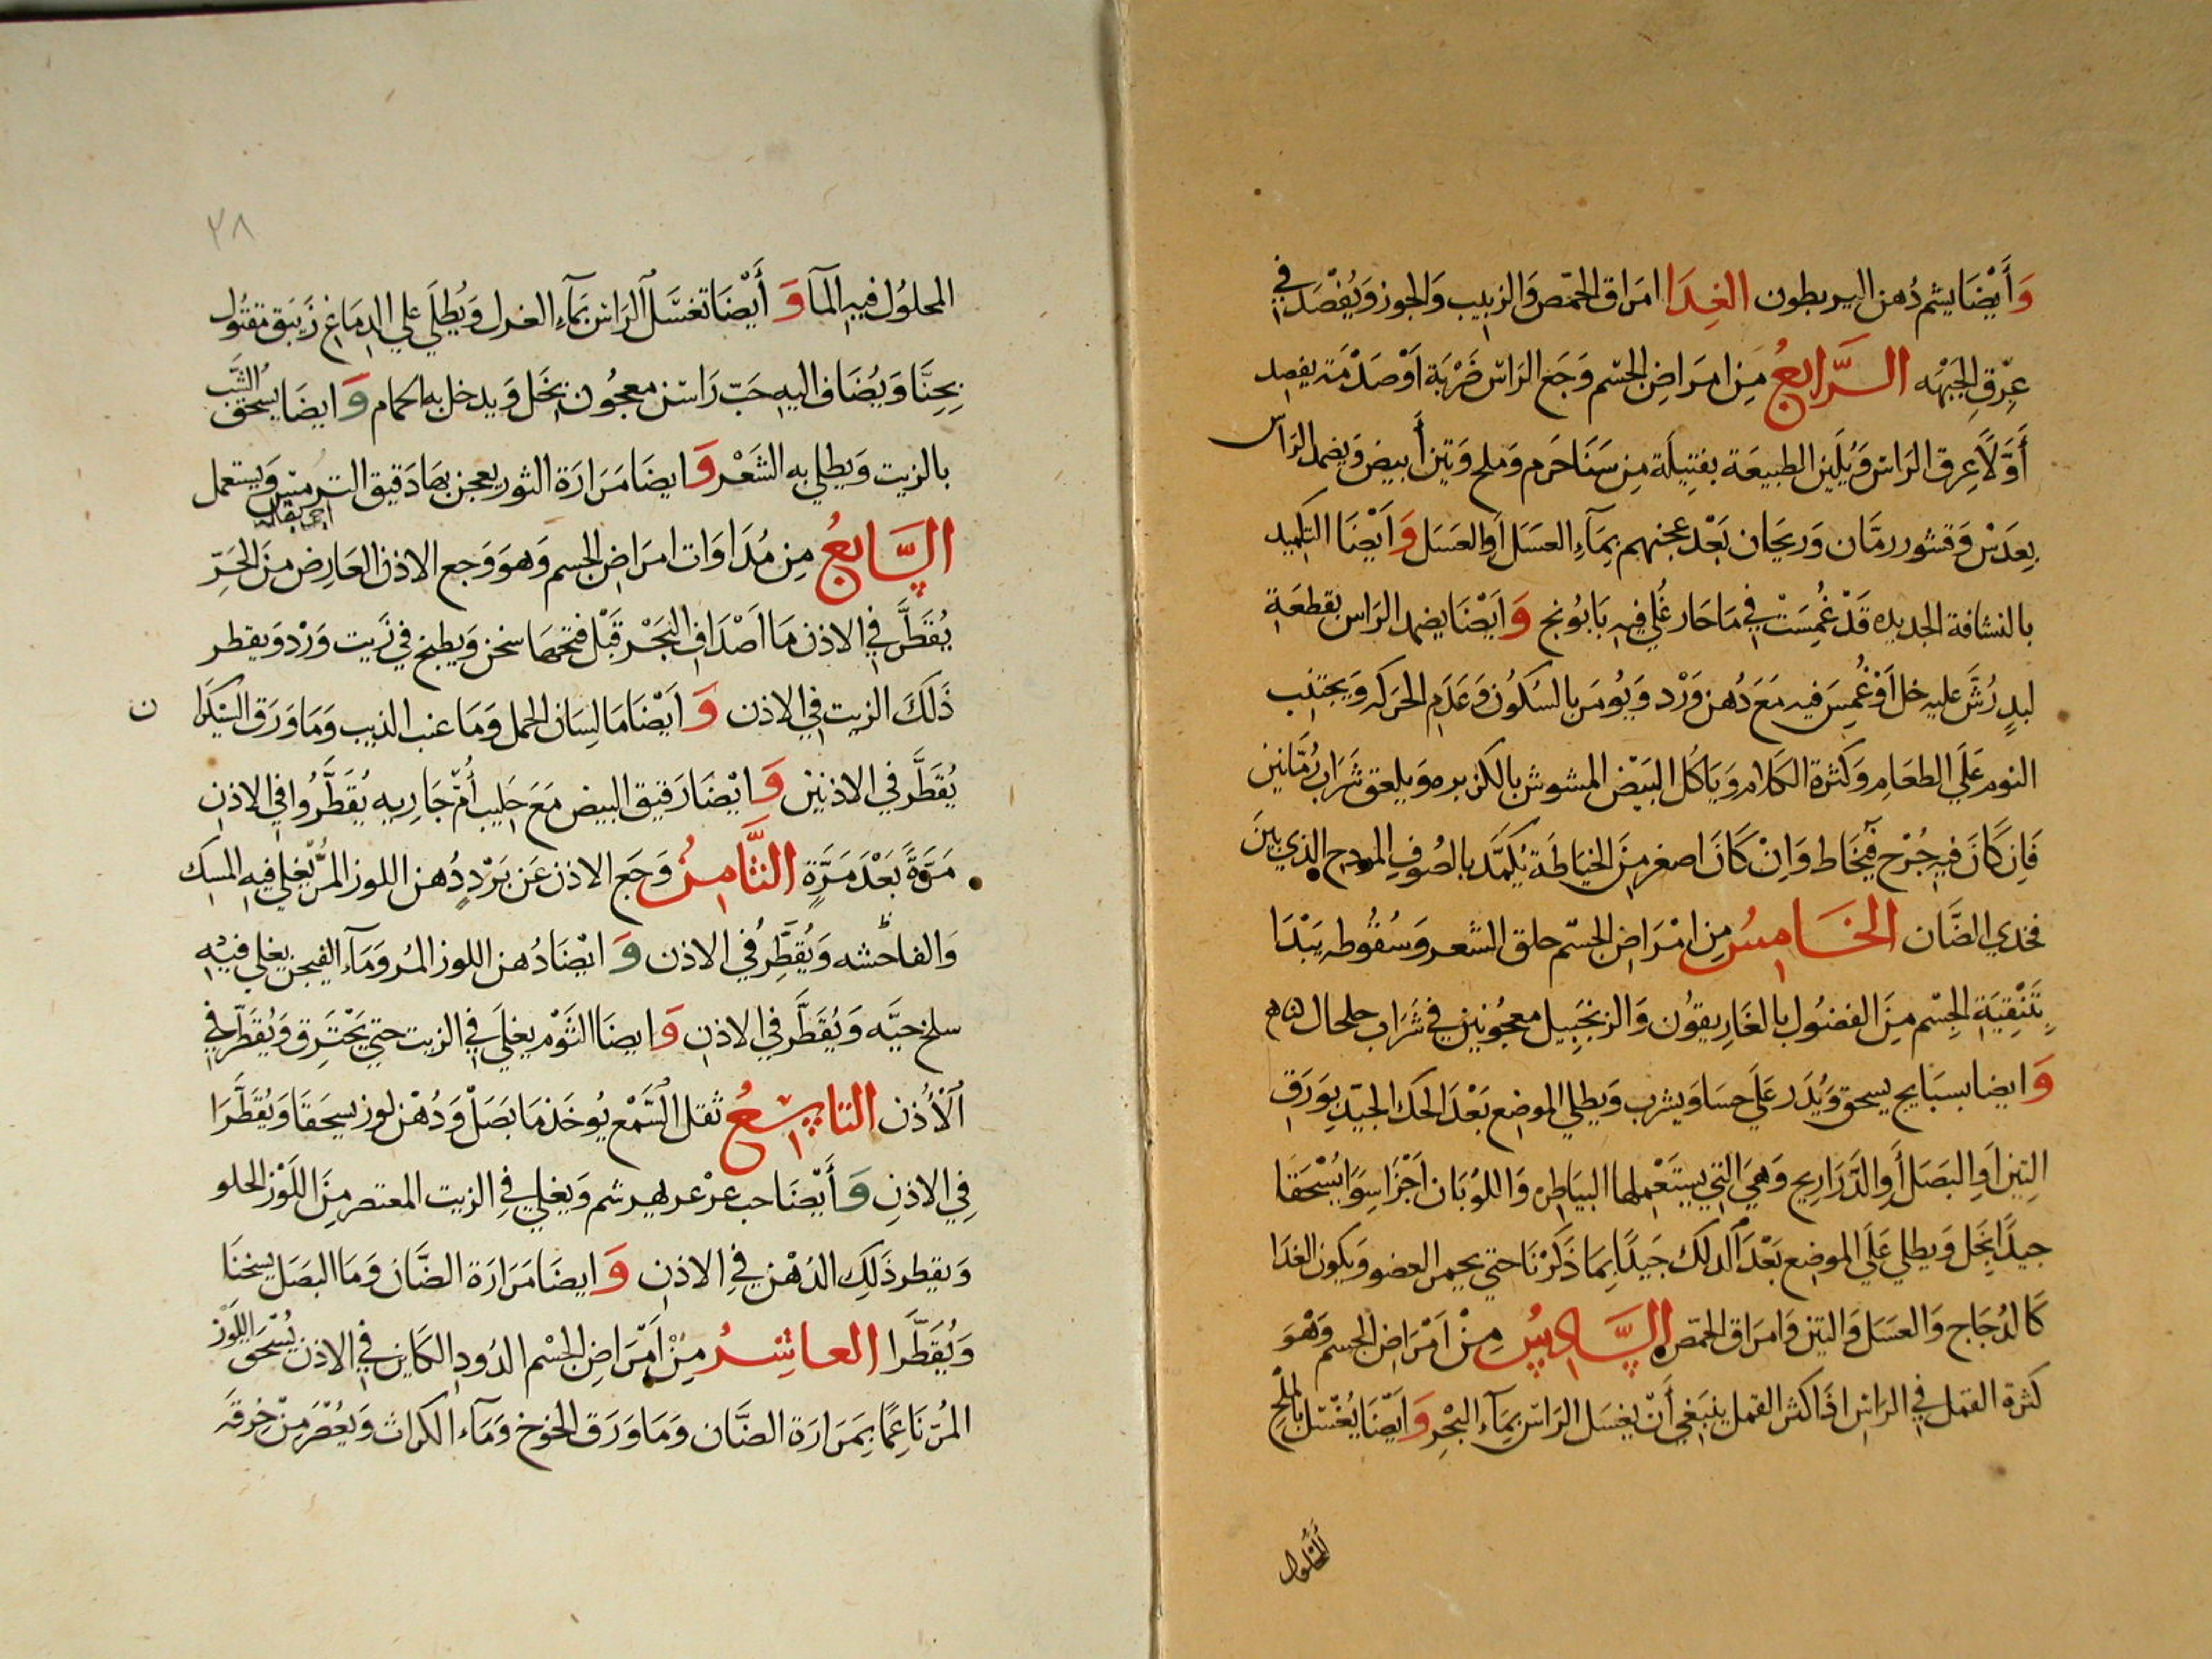 وَأَيْضَا يشم دُهن اليربطون الغِدَا امرَاق الحمّص وَالزبيب وَالجوز وَيُفْصَد في
عِرْقِ الجَبْهَه السَّرابعُ مِن امرَاضِ الجسْم وَجَع الرَاسْ ضَرْبَة اَوْ صَدْمَة يفصد
أَوَّلاً عِرق الرَاس وَيُلَين الطبيعَة بفتِيلَة مِن سَنَا حَرَم وَملح وَتين أبيض وَيضمد الرَاس
بِعدَسْ وَقشور رمَّان وَريحَان بَعْد عجنهم بِمَاءِ العسَل أوالعسَل وَاَيْضَا التكميد
بالنشافة الجديده قَدْ غُمِسَتْ في مَا حَار غُلي فيه بَابُونج وَاَيْضَا يضمد الرَاس بقطعَة
لبدٍ رُشَّ عليه خل اَوْ غُمِسَ فيه مَعَ دُهن وَرْد وَيُومَر بالسُكوُن وَعَدَم الحَركه وَيجتنب
النوم عَلَي الطعَامِ وَكثرة الكلام وَيَاكُل البَيْض المشوش بالكزبره وَيلعق شَرَاب رُمَّانين
فَاِن كَانَ فيه جُرْح فيخَاط وَاِنْ كَانَ اصغر مِنَ الخيَاطَة يُكمَّد بالصُوفِ الذي بينَ
فخدي الضَّان الخَامِسُ مِن امْرَاض الجسْم حلق الشعر وَسُقُوطه يَبْدَا
بِتَنْقِيَةِ الجِسْم مِنَ الفضُول بالغَارِيقوُن وَالزنجَبِيل معجُونين في شَرَاب
وَايضا بسبَايج يسحق وَيُدَر عَلَي حسَا وَيشرب وَيطلي الموضِع بَعْدَ الحَك الجيّد بِوَرَق
التين اَو البَصَل أَو الذَّرَارِيح وَهيَ التي يستَعْملها البيَاطره وَاللوُبَان اَجْزَا سِوَا يُسْحَقَا
جيدًا بخَل وَيطلي عَلَي الموضِع بَعْدَ الدلك جَيدًا بِمَا ذَكرْنَا حتي يحمر العضو وَيكون الغدَا
كَالدُجَاج وَالعسَل وَالتين وَامرَاق الحمّص السَّادِسُ مِنْ اَمْرَاض الجسم وَهْوَ
كثرة القمل في الرَاس اذَا كثر القمل ينبَغي أَنْ يغسَل الرَاس بمَآءِ البحْرِ وَاَيْضَا يُغْسَل بالملْح
المحلوُل
المحلوُل فيه المآ وَأَيْضَا تغسَّل الرَاس بمَآءِ الغسل وَيُطلَي علي الدِمَاغ زَيبَق مقتُول
بِحِنَّا وَيُضَاف اليه حَبّ رَاسَن معجُون بخَل وَيدخل به الحمام وَايضَا يسُحق الشَّب
بالزيت وَيطلي به الشَعْر وَايضَا مَرَارَة الثور يعجن بهَا دَقيق الترمس وَيستعمل
السَّابعُ مِن مُدَاوَات امرَاضِ الجسم وَهوَ وَجع الاذن العَارِض مِنَ الحَرّ
يُقَطَّر في الاذن مَا اَصْدَاف البَحْر قَبْل فتحهَا سخن وَيطبخ في زَيت وَرْد وَيقطر
ذَلَكَ الزيت في الاذن وَاَيْضَا مَا لِسَان الحمل وَمَا عنب الذيب وَمَا وَرَق السَيْكرَا
ن
يُقَطَّر في الاذنين وَايْضَا رَقيق البيض مَعَ حَليب أُمّ جَاريه يُقَطَّرُوا في الاذن
مَرَّةً بَعْدَ مَرَّةٍ الثَّامِنُ وَجَع الاذن عَن بَرْد دُهن اللوز المُرّ يُغلي فيه المسَك
وَالفاحشه وَيُقَطَّر في الاذن وَايْضَا دُهن اللوز المُر وَمَآء الفيجن يغلي فيه
سلخ حيَّه وَيُقَطَّر في الاذن وَايضَا الثَوْم يغلَي في الزيت حتي يَحْترَق وَيُقَطَّر في
الأُذن التاسِعُ ثقل السَّمْع يُوخَذ مَا بَصَل وَدُهْن لوز يسحَقَا وَيُقَطَّرَا
فِي الاذنِ وَأَيْضَا حب عرْعر يهرشم وَيغلي فِي الزيت المعتصر مِنَ اللَوْز الحلو
وَيقطر ذَلِك الدُهْن فِي الاذن وَايضَا مَرَارَة الضَّان وَمَا البصَل يسخنَا
وَيُقَطَّرا العاشِرُ مِنْ اَمْرَاضِ الجِسْم الدُود الكَاين في الاذن يُسْحق اللَوْز
المُرّ نَاعِمًا بمَرَارَة الضَّان وَمَا وَرَق الخوخ وَمَآء الكراث وَيعُصَر مِنْ خِرقَه
٢٨